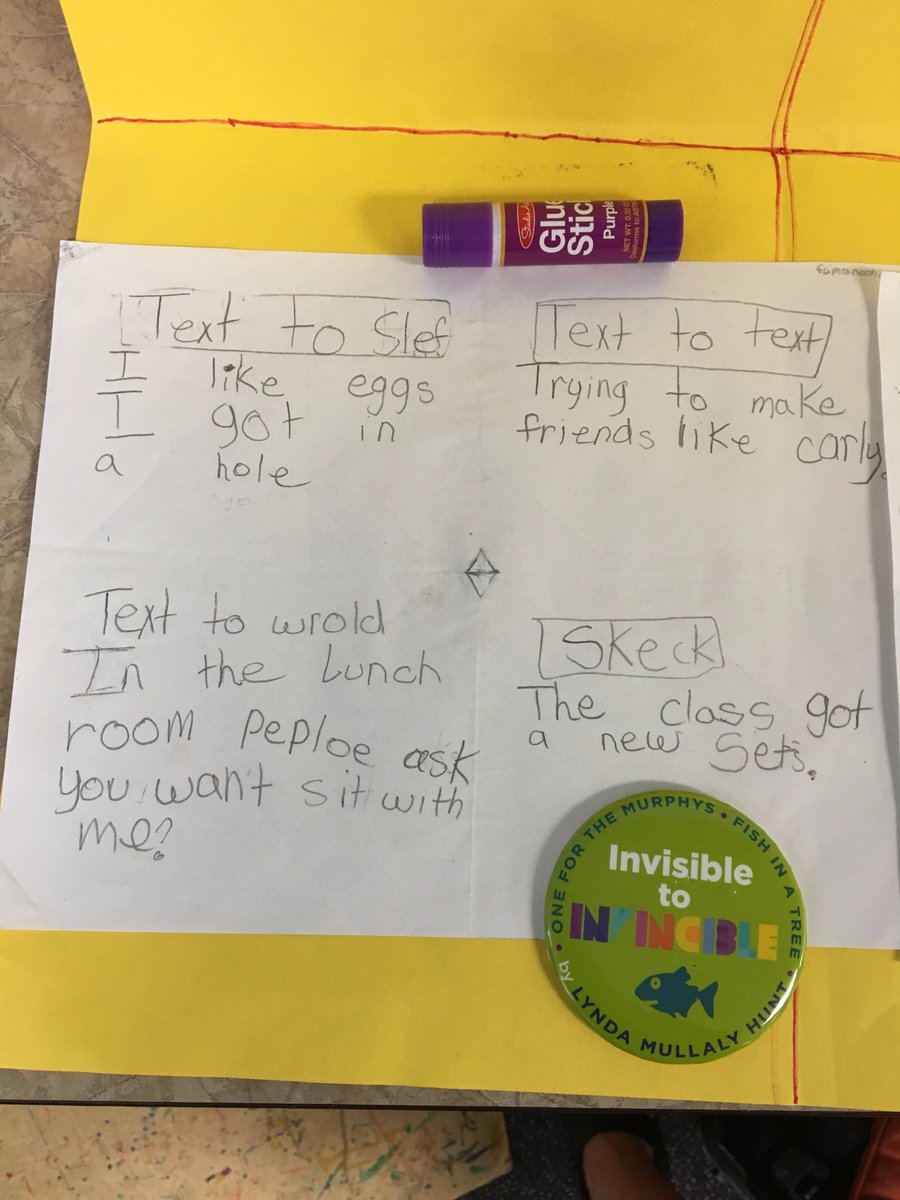 Glue
Stick
Purple
NET WT. 0.32 O
Conforms to ASTM
Text to Slef
I like eggs
I got in
a hole
Text to text
Trying to make
friends like carly.
Text to wrold
In the Lunch
room Peploe ask
you want sit with
me?
Skeck
The class got
a new Sets.
ONE FOR THE MURPHYS • FISH IN A TREE •
Invisible
to
INVINCIBLE
by LYNDA MULLALY HUNT •